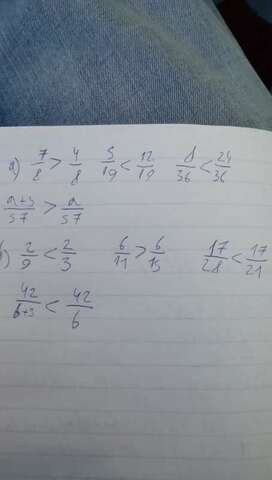 a) 7/8 > 4/8 5/19 < 12/19 8/36 < 24/36
a+5/57 > a/57
b) 2/9 < 2/3 6/11 > 6/15 17/28 < 17/21
42/b+3 < 42/b